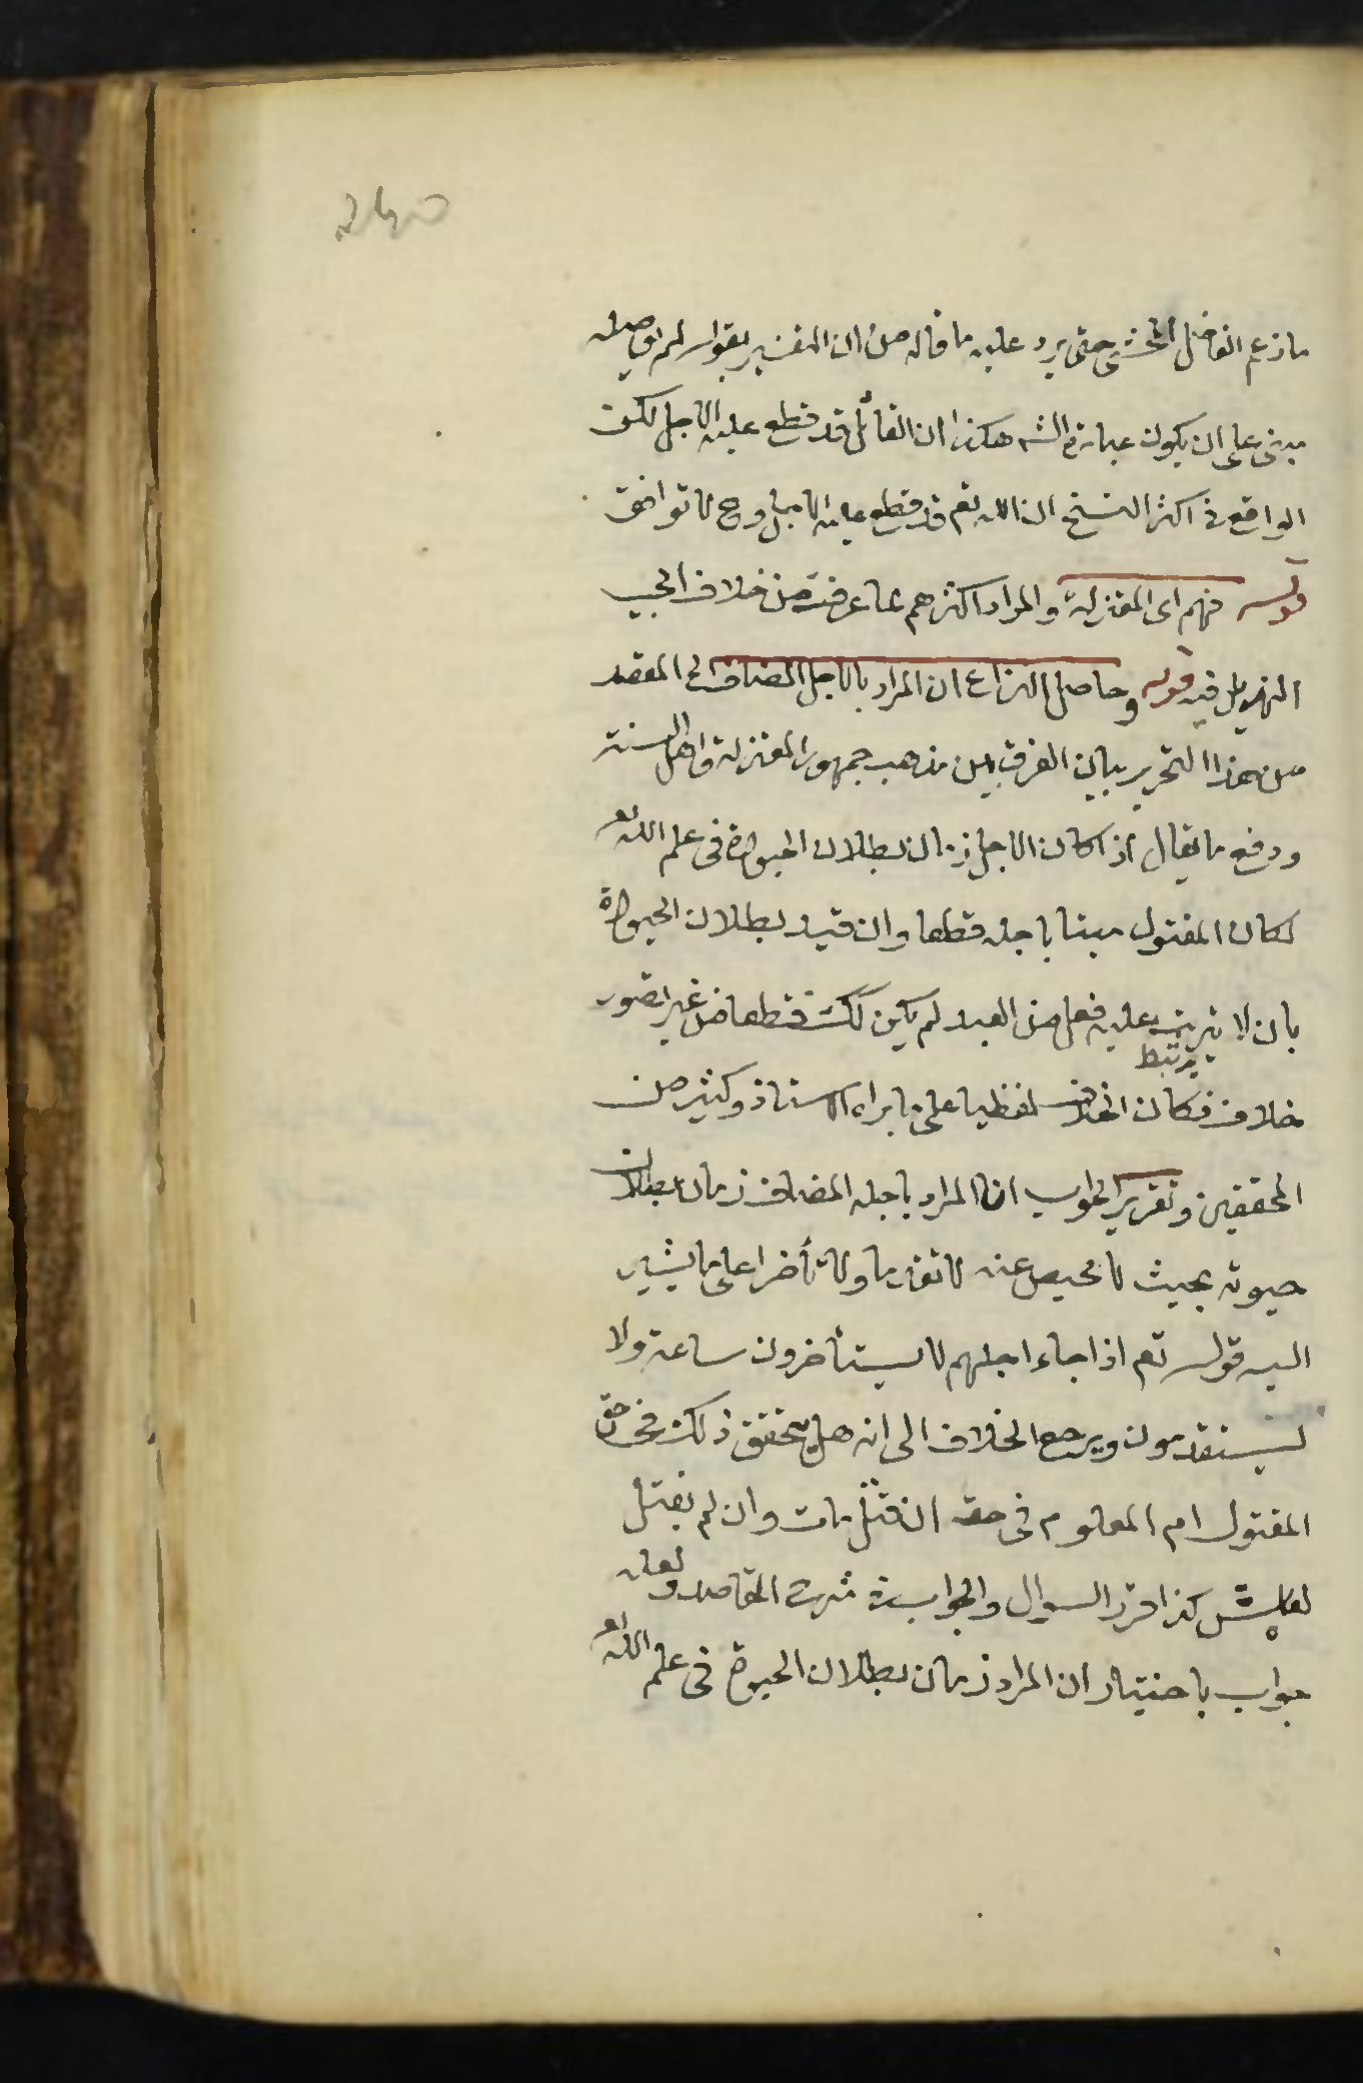 ما زعم الفاضل المحشى حتى يرد عليه ما قاله من ان التفسير بقوله لم يوصله
مبنى على ان يكون عبارة الشه هكذا ان القاتل قد قطع عليه الاجل لكن
الواقع فى اكثر النسخ ان الله تعم قد قطع عليه الاجل وح لا توافق
قوله فهم اى المعتزلة والمراد اكثرهم لما عرفت من خلاف ابى
الهذيل فيه قوله وحاصل النزاع ان المراد بالاجل المضاف الخ المقصد
من هذا التحرير بيان الفرق بين مذهب جمهور المعتزلة واهل السنة
ودفع ما يقال اذا كان الاجل زمان بطلان الحيوة فى علم الله تع
لكان المقتول ميتا باجله قطعا وان قيد بطلان الحيوة
بان لا يترتب عليه فعل من العبد لم يكن كذلك قطعا من غير تصور
يرتبط
خلاف فكان الخلاف لفظيا على ما يراه الاستاذ وكثير من
المحققين وتقرير الجواب ان المراد باجله المضاف زمان بطلان
حيوته بحيث لا محيص عنه لا تقديما ولا تأخرا على ما يشير
اليه قوله تعم اذا جاء اجلهم لا يستأخرون ساعة ولا
يستقدمون ويرجع الخلاف الى انه هل يتحقق ذلك فى حق
المقتول ام المعلوم فى حقه ان قتل مات وان لم يقتل
يعيش كذا قرر السوال والجواب فى شرح المقاصد ولعله
جواب باختيار ان المراد زمان بطلان الحيوة فى علم الله تع